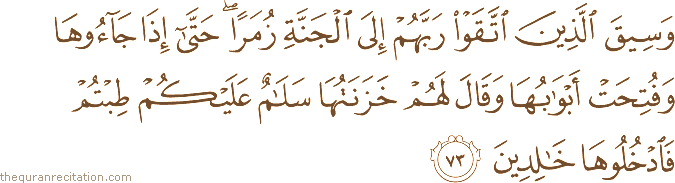 وَسِيقَ ٱلَّذِينَ ٱتَّقَوْا۟ رَبَّهُمْ إِلَى ٱلْجَنَّةِ زُمَرًا ۖ حَتَّىٰٓ إِذَا جَآءُوهَا
وَفُتِحَتْ أَبْوَٰبُهَا وَقَالَ لَهُمْ خَزَنَتُهَا سَلَـٰمٌ عَلَيْكُمْ طِبْتُمْ
فَٱدْخُلُوهَا خَـٰلِدِينَ ٧٣
thequranrecitation.com